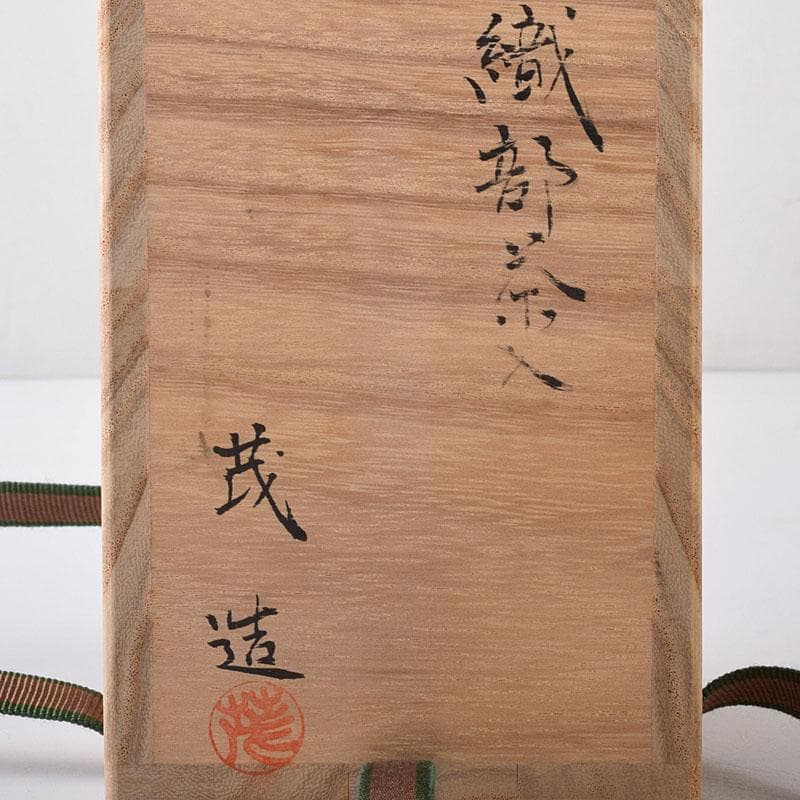 織部茶入
茂造